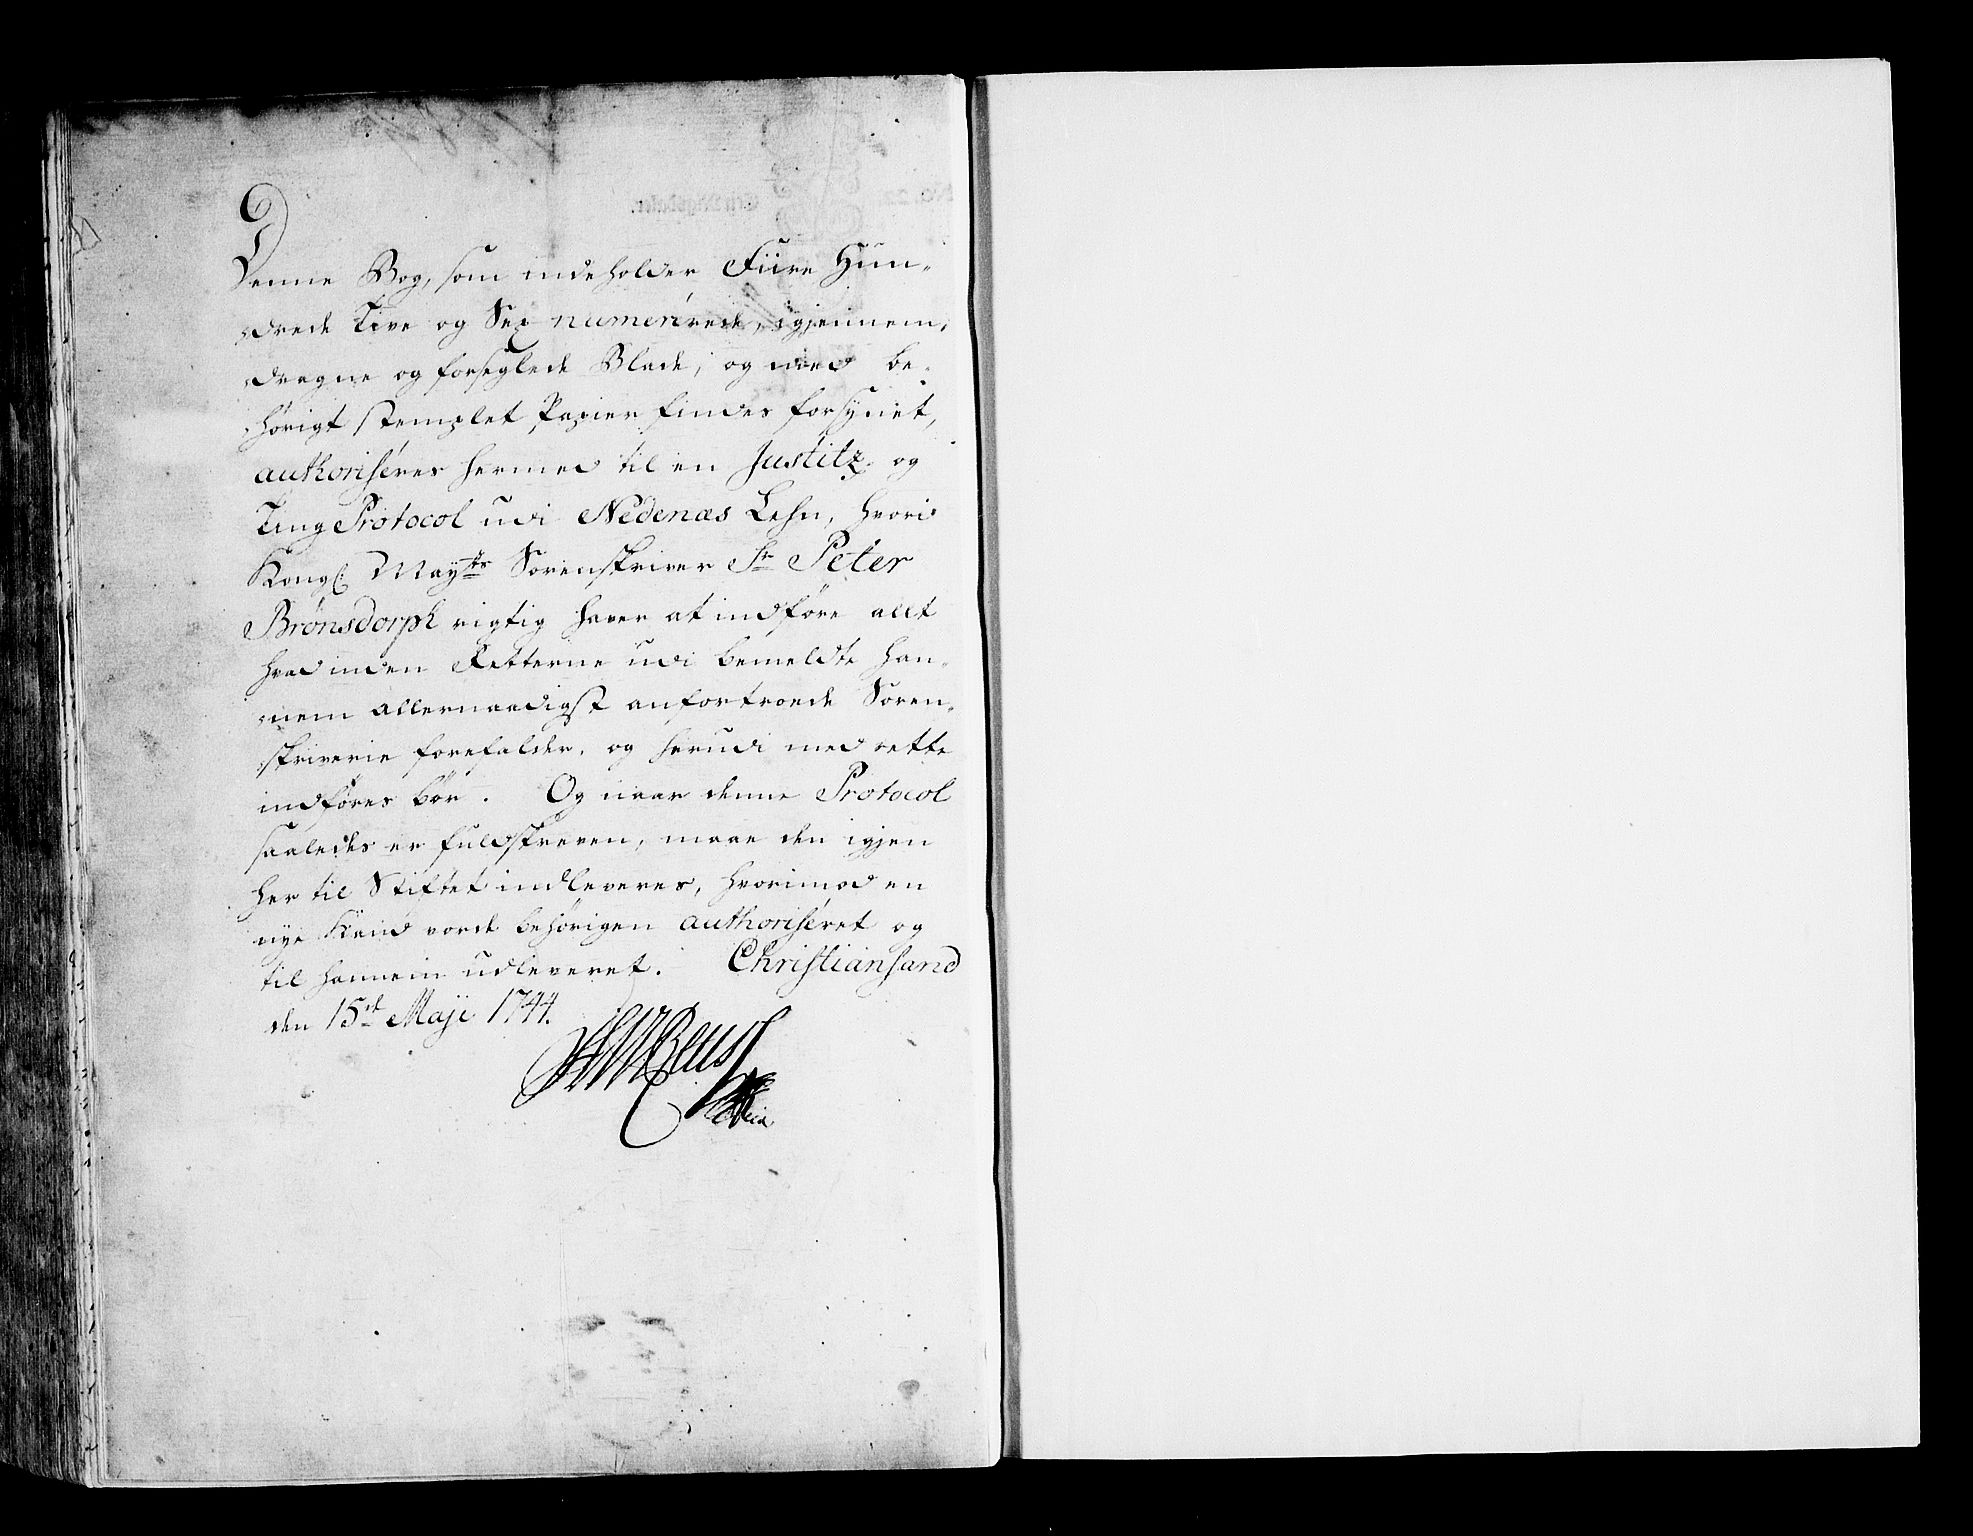 Denne Bog, som indeholder Fiire Hun-
drede Tive og Sex numererede, igjennem-
dragne og forseglede Blade, og med be-
hörigt stemplet Papier findes forsynet,
authoriséres hermed til en Justitz og
Ting Protocol udi Nedenæs Lehn, hvori
Kongl. May.ts Sorenskriver Sr. Peter
Brönsdorph rigtig haver at indföre allt
hvad inden Retterne udi bemeldte han-
nem allernaadigst anfortroede Soren-
skriverie forefalder, og herudi med rette
indföres bör. Og naar denne Protocol
saaledes er fuldskreven, maae den igjen
her til Stiftet indleveres, hvorimod en
nye skal vorde behörigen authoriséret og
til hannem udleveret. Christiansand
den 15de Maji 1744.